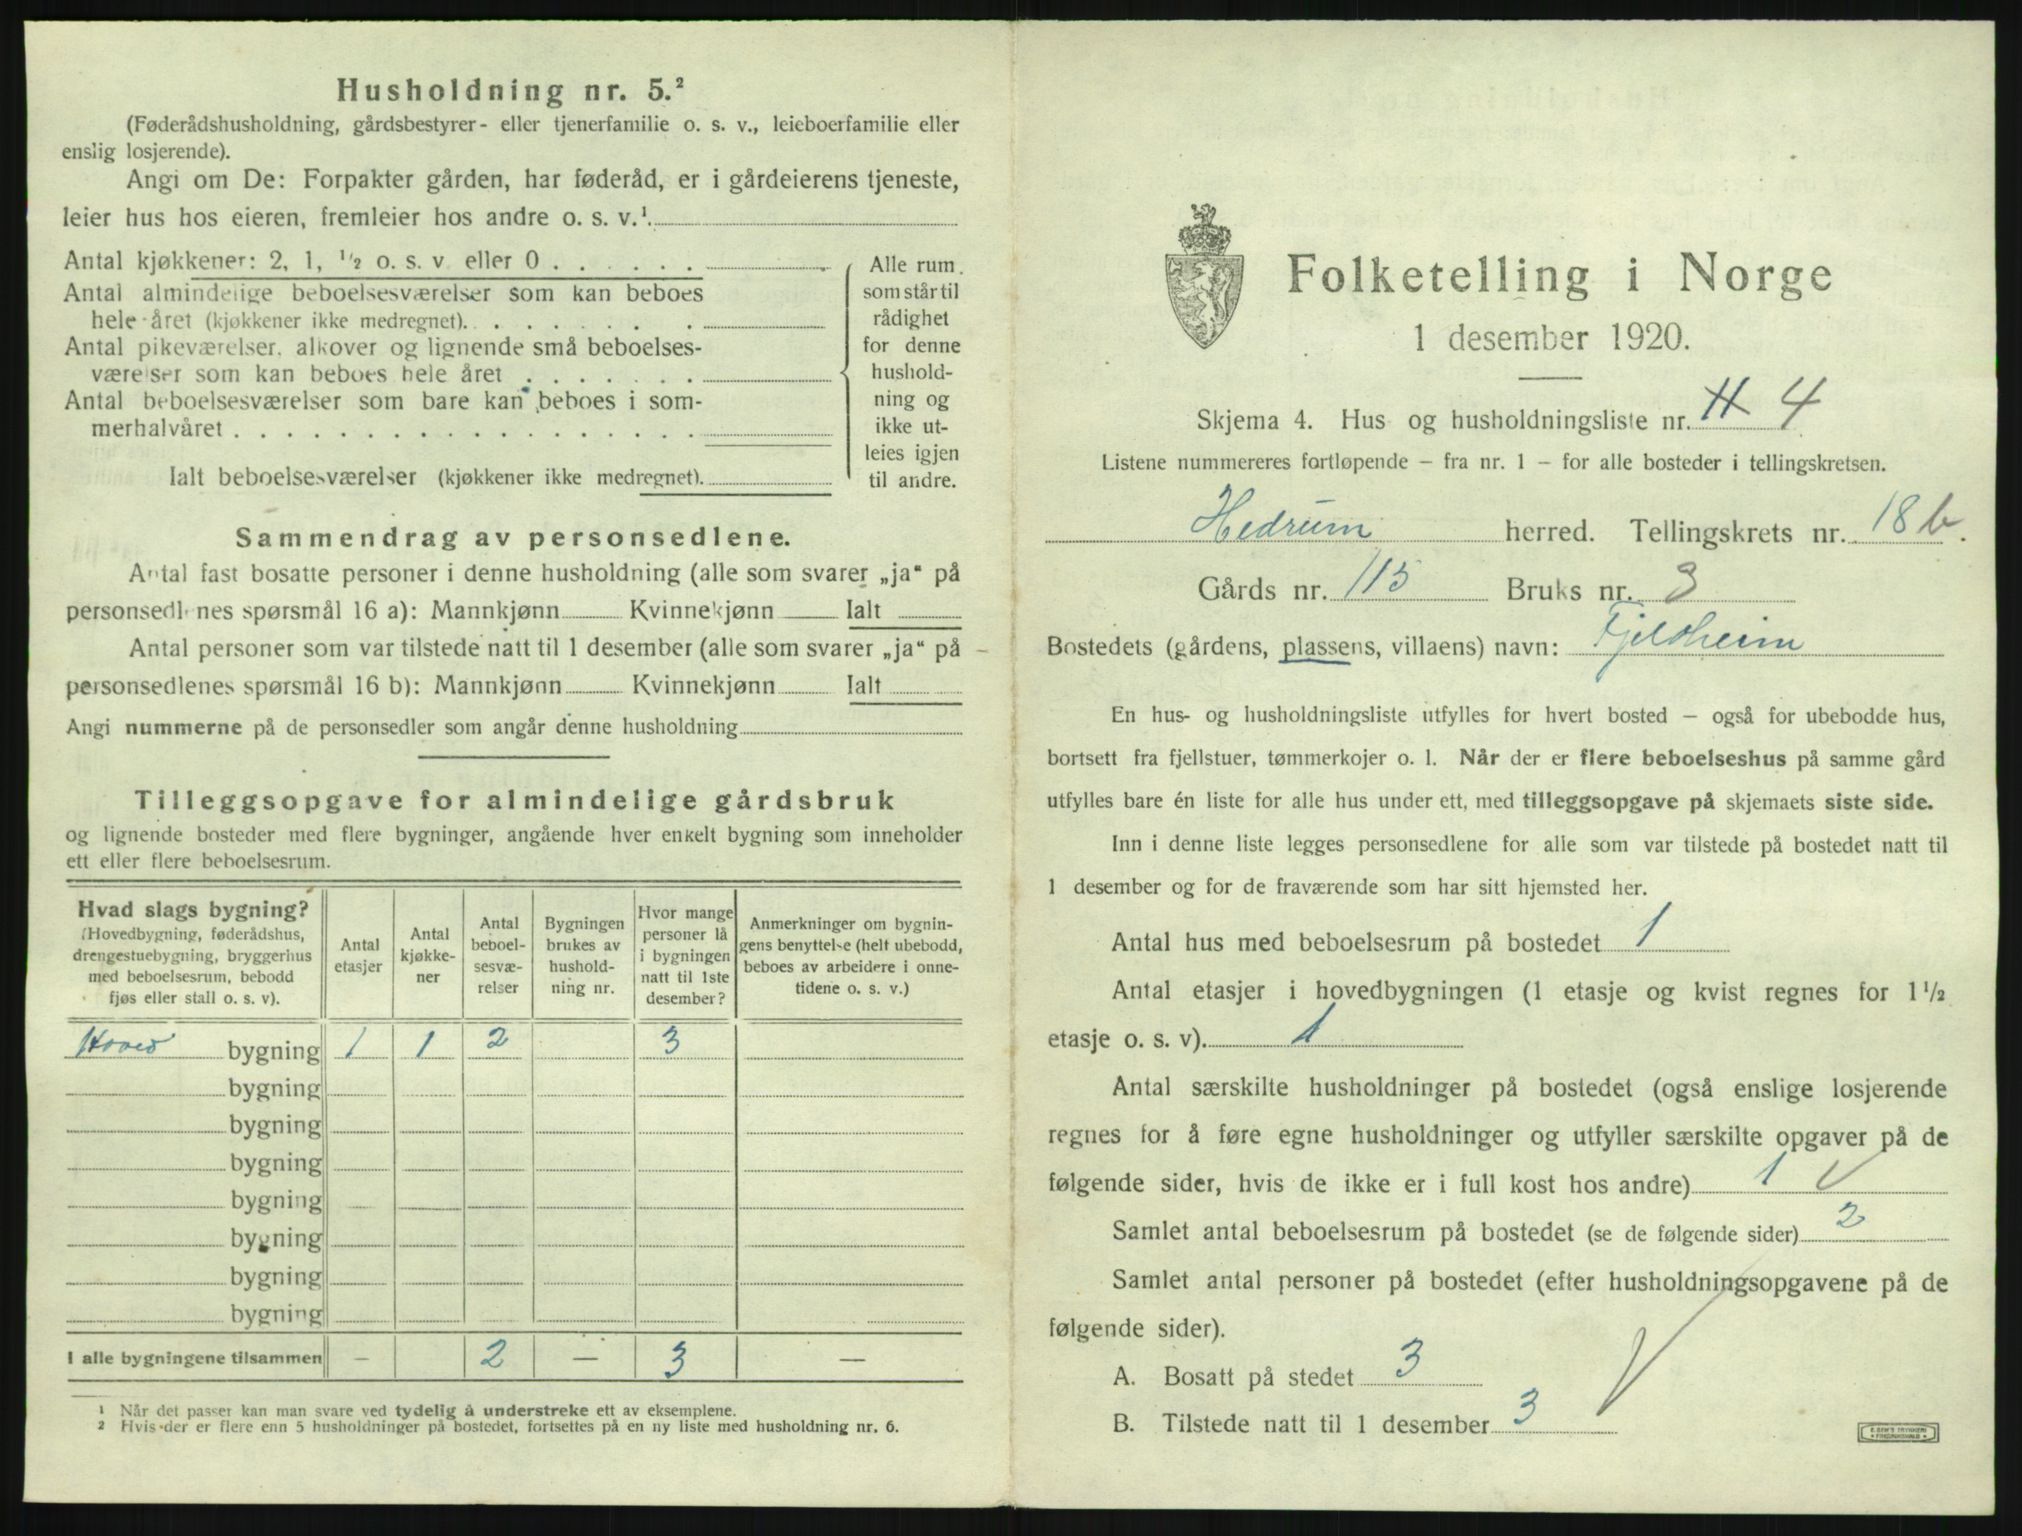 Husholdning nr. 5.²
(Føderådshusholdning, gårdsbestyrer- eller tjenerfamilie o. s. v., leieboerfamilie eller
enslig losjerende).
Angi om De: Forpakter gården, har føderåd, er i gårdeierens tjeneste,
leier hus hos eieren, fremleier hos andre o. s. v.¹
Antal kjøkkener: 2, 1, ¹/₂ o. s. v eller 0 . . . . . .
Antal almindelige beboelsesværelser som kan beboes
hele året (kjøkkener ikke medregnet). . . . . . . .
Antal pikeværelser, alkover og lignende små beboelses-
værelser som kan beboes hele året . . . . . . .
Antal beboelsesværelser som bare kan beboes i som-
merhalvåret . . . . . . . . . . . . . . . . . .
Ialt beboelsesværelser (kjøkkener ikke medregnet).
Alle rum
som står til
rådighet
for denne
hushold-
ning og
ikke ut-
leies igjen
til andre.
Sammendrag av personsedlene.
Antal fast bosatte personer i denne husholdning (alle som svarer „ja“ på
personsedlenes spørsmål 16 a): Mannkjønn Kvinnekjønn Ialt
Antal personer som var tilstede natt til 1 desember (alle som svarer „ja“ på
personsedlenes spørsmål 16 b): Mannkjønn Kvinnekjønn Ialt
Angi nummerne på de personsedler som angår denne husholdning
Tilleggsopgave for almindelige gårdsbruk
og lignende bosteder med flere bygninger, angående hver enkelt bygning som inneholder
ett eller flere beboelsesrum.
Hvad slags bygning?
(Hovedbygning, føderådshus,
drengestuebygning, bryggerhus
med beboelsesrum, bebodd
fjøs eller stall o. s. v).
Antal
etasjer
Antal
kjøkke-
ner
Antal
beboel-
sesvæ-
relser
Bygningen
brukes av
hushold-
ning nr.
Hvor mange
personer lå
i bygningen
natt til 1ste
desember?
Anmerkninger om bygnin-
gens benyttelse (helt ubebodd,
beboes av arbeidere i onne-
tidene o. s. v.)
Hoved bygning 1 1 2 3
bygning
bygning
bygning
bygning
bygning
bygning
bygning
I alle bygningene tilsammen — 2 — 3 —
¹ Når det passer kan man svare ved tydelig å understreke ett av eksemplene.
² Hvis der er flere enn 5 husholdninger på bostedet, fortsettes på en ny liste med husholdning nr. 6.
Folketelling i Norge
1 desember 1920.
Skjema 4. Hus og husholdningsliste nr. 4
Listene nummereres fortløpende – fra nr. 1 – for alle bosteder i tellingskretsen.
Hedrum herred. Tellingskrets nr. 18 b.
Gårds nr. 115 Bruks nr. 3
Bostedets (gårdens, plassens, villaens) navn: Fjeldheim
En hus- og husholdningsliste utfylles for hvert bosted – også for ubebodde hus,
bortsett fra fjellstuer, tømmerkojer o. l. Når der er flere beboelseshus på samme gård
utfylles bare én liste for alle hus under ett, med tilleggsopgave på skjemaets siste side.
Inn i denne liste legges personsedlene for alle som var tilstede på bostedet natt til
1 desember og for de fraværende som har sitt hjemsted her.
Antal hus med beboelsesrum på bostedet 1
Antal etasjer i hovedbygningen (1 etasje og kvist regnes for 1¹/₂
etasje o. s. v). 1
Antal særskilte husholdninger på bostedet (også enslige losjerende
regnes for å føre egne husholdninger og utfyller særskilte opgaver på de
følgende sider, hvis de ikke er i full kost hos andre) 1
Samlet antal beboelsesrum på bostedet (se de følgende sider) 2
Samlet antal personer på bostedet (efter husholdningsopgavene på de
følgende sider).
A. Bosatt på stedet 3
B. Tilstede natt til 1 desember 3